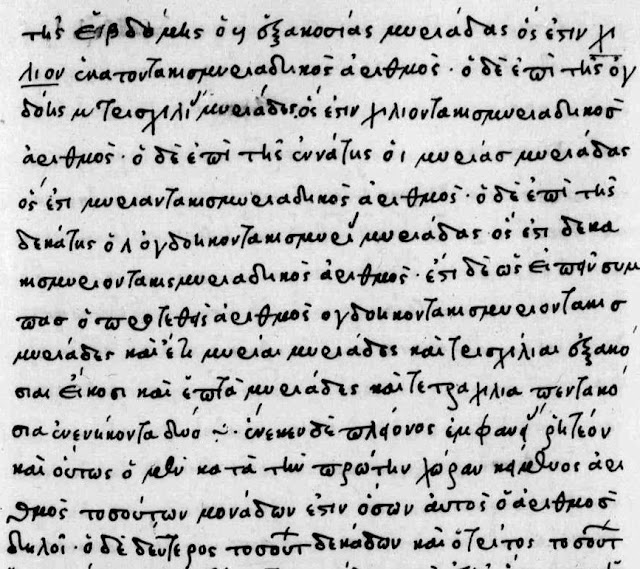 τῆς ἑβδόμης ὁ ἑξακοσίας μυριάδας ὅς ἐστιν χι
λιον ἑκατοντακισμυριαδικὸς ἀριθμὸς · ὁ δὲ ἐπὶ τῆς ὀγ
δόης τρισχιλί μυριάδες ὅς ἐστιν χιλιοντακισμυριαδικὸσ
ἀριθμὸς · ὁ δὲ ἐπὶ τῆς ἐννάτης ὁ ι μυρίασ μυριάδας
ὅς ἐστι μυριαντακισμυριαδικὸς ἀριθμὸς · ὁ δὲ ἐπὶ τῆς
δεκάτης ὁ λ ὀγδοηκοντακισμυρί μυριάδας · ὅς ἐστι δεκα
κισμυριοντακισμυριαδικὸς ἀριθμὸς · ἔστι δὲ ὡς εἰπεῖν συμ
πασ ὁ προτεθεὶς ἀριθμὸς ογδοηκοντακισμυριοντακισ
μυριάδες καὶ ἔτι μυρίαι μυριάδες καὶ τρισχίλιαι ἑξακό
σιαι εἴκοσι καὶ ἑπτὰ μυριάδες καὶ τετραχίλια πεντακό
σια ἐνενήκοντα δυό · ἕνεκεν δὲ πλείονος ἐμφανεί ῥητέον
καὶ οὕτως ὁ μὲν κατὰ τὴν πρώτην χώραν κείμενος ἀρι
θμὸς τοσούτων μονάδων ἐστιν ὅσων αὐτὸς ὁ ἀριθμὸσ
δηλοῖ · ὁ δὲ δεύτερος τοσούτ δεκάδων καὶ ὁ τρίτος τοσούτ